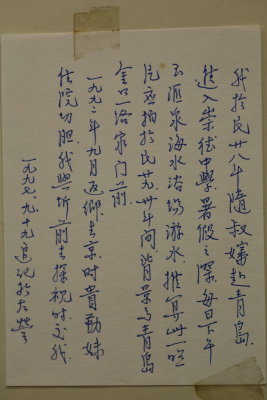 我於民廿八年隨叔嬸赴青島
進入崇德中學暑假之際每日下午
去匯泉海水浴場游水推算此一照
片應攝於民廿九、卅年間背景為青島
金口一路家門前
一九九二年九月返鄉去京時貴勤妹
住院切胆我與圻前去探視時交我
一九九七、九、十九追記於台